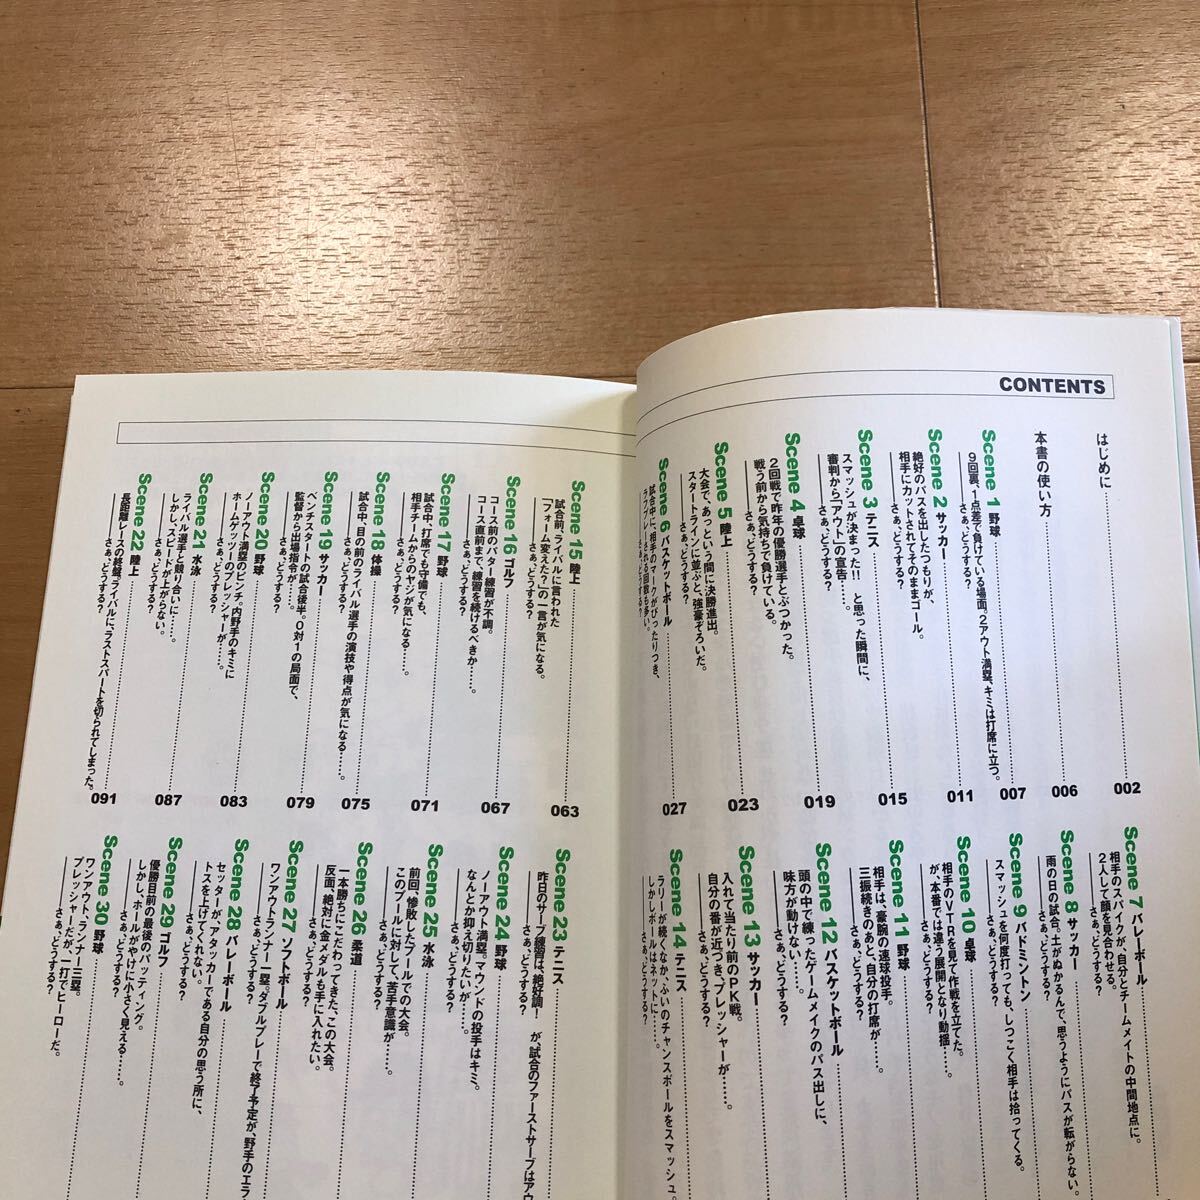 CONTENTS
はじめに
002
本書の使い方
006
Scene 1 野球
9回裏、1点差で負けている場面。2アウト満塁、キミは打席に立つ。
――さぁ、どうする?
007
Scene 2 サッカー
絶好のパスを出したつもりが、
相手にカットされてそのままゴール。
――さぁ、どうする?
011
Scene 3 テニス
スマッシュが決まった!! と思った瞬間に、
審判から「アウト」の宣告……。
――さぁ、どうする?
015
Scene 4 卓球
2回戦で昨年の優勝選手とぶつかった。
戦う前から気持ちで負けている。
――さぁ、どうする?
019
Scene 5 陸上
大会で、あっという間に決勝進出。
スタートラインに並ぶと、強豪ぞろいだ。
――さぁ、どうする?
023
Scene 6 バスケットボール
試合中に、相手のマークがぴったりつき、
ラフプレーされる回数も多い。
――さぁ、どうする?
027
Scene 7 バレーボール
相手のスパイクが、自分とチームメイトの中間地点に。
2人して顔を見合わせる。
――さぁ、どうする?
Scene 8 サッカー
雨の日の試合。土がぬかるんで、思うようにパスが転がらない
――さぁ、どうする?
Scene 9 バドミントン
スマッシュを何度打っても、しつこく相手は拾ってくる。
――さぁ、どうする?
Scene 10 卓球
相手のVTRを見て作戦を立てた。
が、本番では違う展開となり動揺……。
――さぁ、どうする?
Scene 11 野球
相手は、豪腕の速球投手。
三振続きのあと、自分の打席が……。
――さぁ、どうする?
Scene 12 バスケットボール
頭の中で練ったゲームメイクのパス出しに、
味方が動けない……。
――さぁ、どうする?
Scene 13 サッカー
入れて当たり前のPK戦。
自分の番が近づき、プレッシャーが……。
――さぁ、どうする?
Scene 14 テニス
ラリーが続くなか、ふいのチャンスボールをスマッシュ。
しかしボールはネットに……。
――さぁ、どうする?
Scene 15 陸上
試合前、ライバルに言われた
「フォーム変えた?」の一言が気になる。
――さぁ、どうする?
063
Scene 16 ゴルフ
コース前のパター練習が不調。
コース直前まで、練習を続けるべきか……。
――さぁ、どうする?
067
Scene 17 野球
試合中、打席でも守備でも、
相手チームからのヤジが気になる……。
――さぁ、どうする?
071
Scene 18 体操
試合中、目の前のライバル選手の演技や得点が気になる……。
――さぁ、どうする?
075
Scene 19 サッカー
ベンチスタートの試合後半。0対1の局面で、
監督から出場指令が……。
――さぁ、どうする?
079
Scene 20 野球
ノーアウト満塁のピンチ。内野手のキミに
ホームゲッツーのプレッシャーが……。
――さぁ、どうする?
083
Scene 21 水泳
ライバル選手と競り合いに……。
しかし、スピードが上がらない。
――さぁ、どうする?
087
Scene 22 陸上
長距離レースの終盤。ライバルに、ラストスパートを切られてしまった。
――さぁ、どうする?
091
Scene 23 テニス
昨日のサーブ練習は、絶好調! が、試合のファーストサーブはアウ
――さぁ、どうする?
Scene 24 野球
ノーアウト、満塁。マウンドの投手はキミ。
なんとか抑え切りたいが……。
――さぁ、どうする?
Scene 25 水泳
前回、惨敗したプールでの大会。
このプールに対して、苦手意識が……。
――さぁ、どうする?
Scene 26 柔道
一本勝ちにこだわってきた、この大会。
反面、絶対に金メダルも手に入れたい。
――さぁ、どうする?
Scene 27 ソフトボール
ワンアウトランナー一塁。ダブルプレーで終了予定が、野手のエラ
――さぁ、どうする?
Scene 28 バレーボール
セッターが、アタッカーである自分の思う所に、
トスを上げてくれない。
――さぁ、どうする?
Scene 29 ゴルフ
優勝目前の最後のパッティング。
しかし、ホールがやけに小さく見える……。
――さぁ、どうする?
Scene 30 野球
ワンアウト、ランナー三塁。
プレッシャーだが、一打でヒーローだ。
――さぁ、どうする?